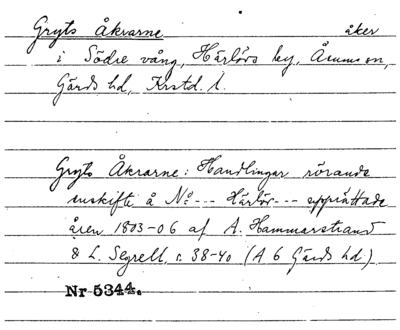 Gryts Åkrarne åker
i Södre vång, Härlövs by, Årums sn,
Gärds hd, Krstd. l.
Gryts Åkrarne: Handlingar rörande
enskifte å No --- Härlöv --- upprättade
åren 1803-06 af A. Hammarstrand
& L. Segrell, s. 38-40 (A 6 Gärds hd).
Nr 5344.